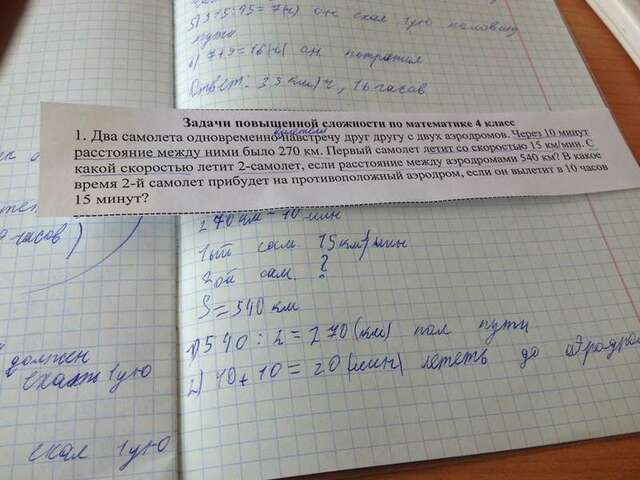 5) 315:45=7(ч) он ехал 1ую половину
пути
6) 7+9=16(ч) он потратил
Ответ. 35 км/ч, 16 часов
Задачи повышенной сложности по математике 4 класс
вылетели
1. Два самолета одновременно навстречу друг другу с двух аэродромов. Через 10 минут
расстояние между ними было 270 км. Первый самолет летит со скоростью 15 км/мин. С
какой скоростью летит 2-самолет, если расстояние между аэродромами 540 км? В какое
время 2-й самолет прибудет на противоположный аэродром, если он вылетит в 10 часов
15 минут?
270 км - 10 мин
1ый сам. 15 км/мин
2ой сам. ?
S = 540 км
1) 540 : 2 = 270 (км) пол пути
2) 10 + 10 = 20 (мин) лететь до аэродром
часов)
должен
ехать 1ую
ехал 1ую